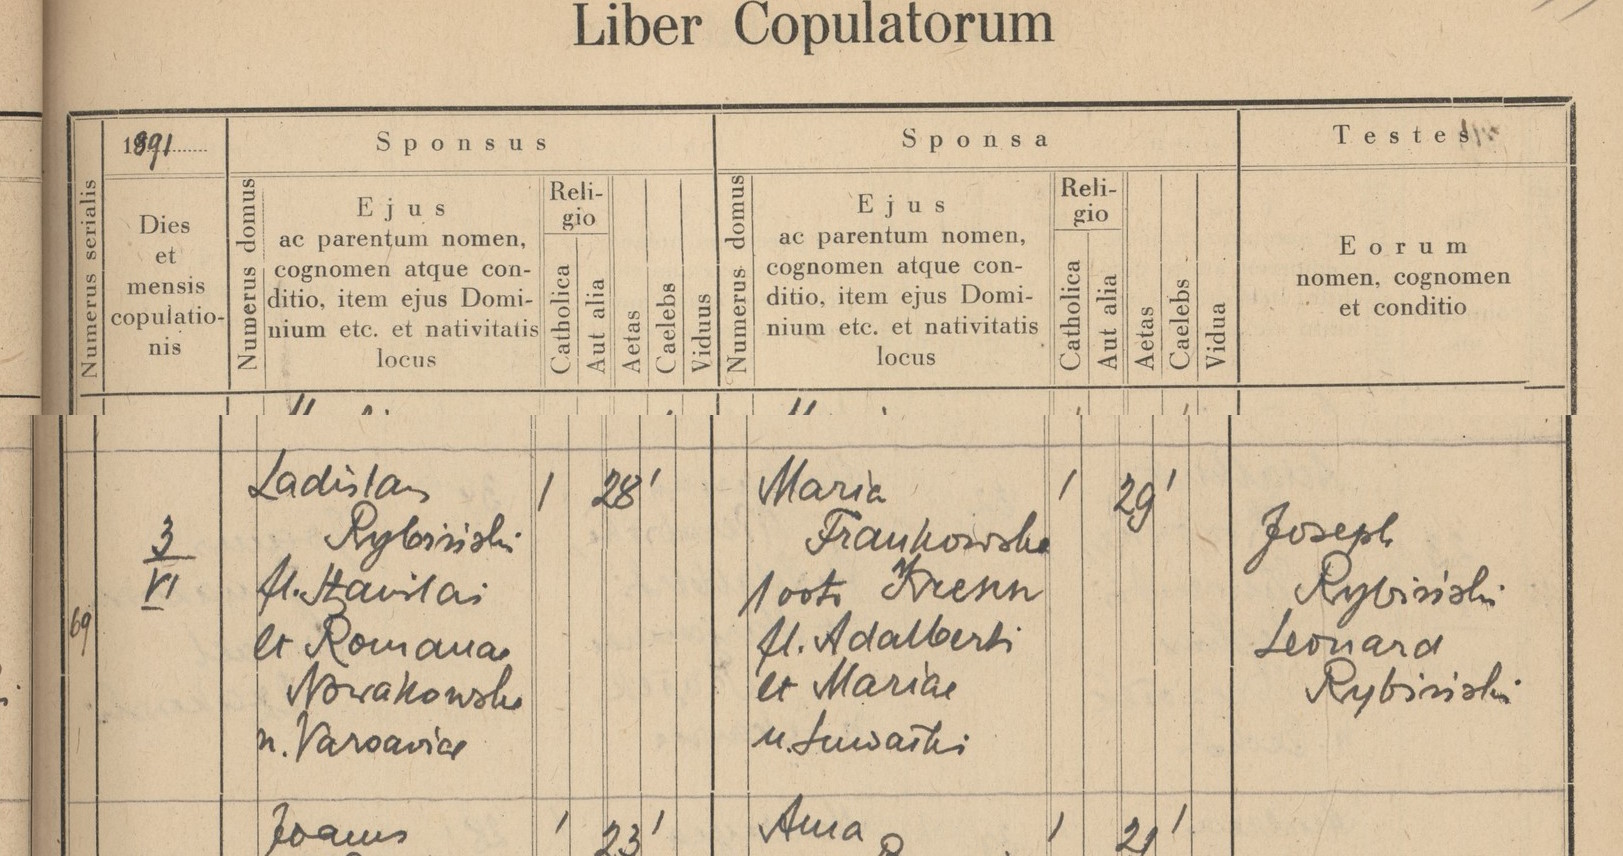 Liber Copulatorum
Numerus serialis
1891
Dies
et
mensis
copulatio-
nis
Sponsus
Numerus domus
Ejus
ac parentum nomen,
cognomen atque con-
ditio, item ejus Domi-
nium etc. et nativitatis
locus
Reli-
gio
Catholica
Aut alia
Aetas
Caelebs
Viduus
Sponsa
Numerus domus
Ejus
ac parentum nomen,
cognomen atque con-
ditio, item ejus Domi-
nium etc. et nativitatis
locus
Reli-
gio
Catholica
Aut alia
Aetas
Caelebs
Vidua
Testes
Eorum
nomen, cognomen
et conditio
69
3
VI
Ladislaus
Rybiński
fl. Stanislai
et Romanae
Nowakowska
n. Varsaviae
1 28 1
Maria
Frankowska
1 voto
fl. Adalberti
et Mariae
n. Suwałki
1 29 1
Joseph
Rybiński
Leonard
Rybiński
Joannes
1 23 1
Anna
1 21 1